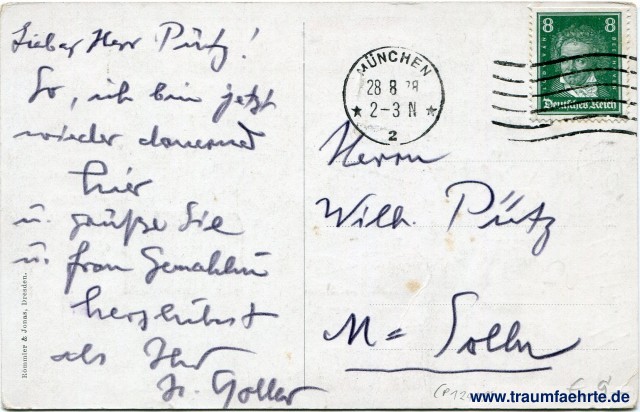 Lieber Herr Pütz!
So, ich bin jetzt
wieder dauernd
hier
u. grüße Sie
u. Frau Gemahlin
herzlichst
als Ihr
Goller
Rommler & Jonas, Dresden.
MÜNCHEN
28 8 28
2-3 N
2
8 8
Deutsches Reich
Herrn
Wilh. Pütz
M = Solln
www.traumfaehrte.de